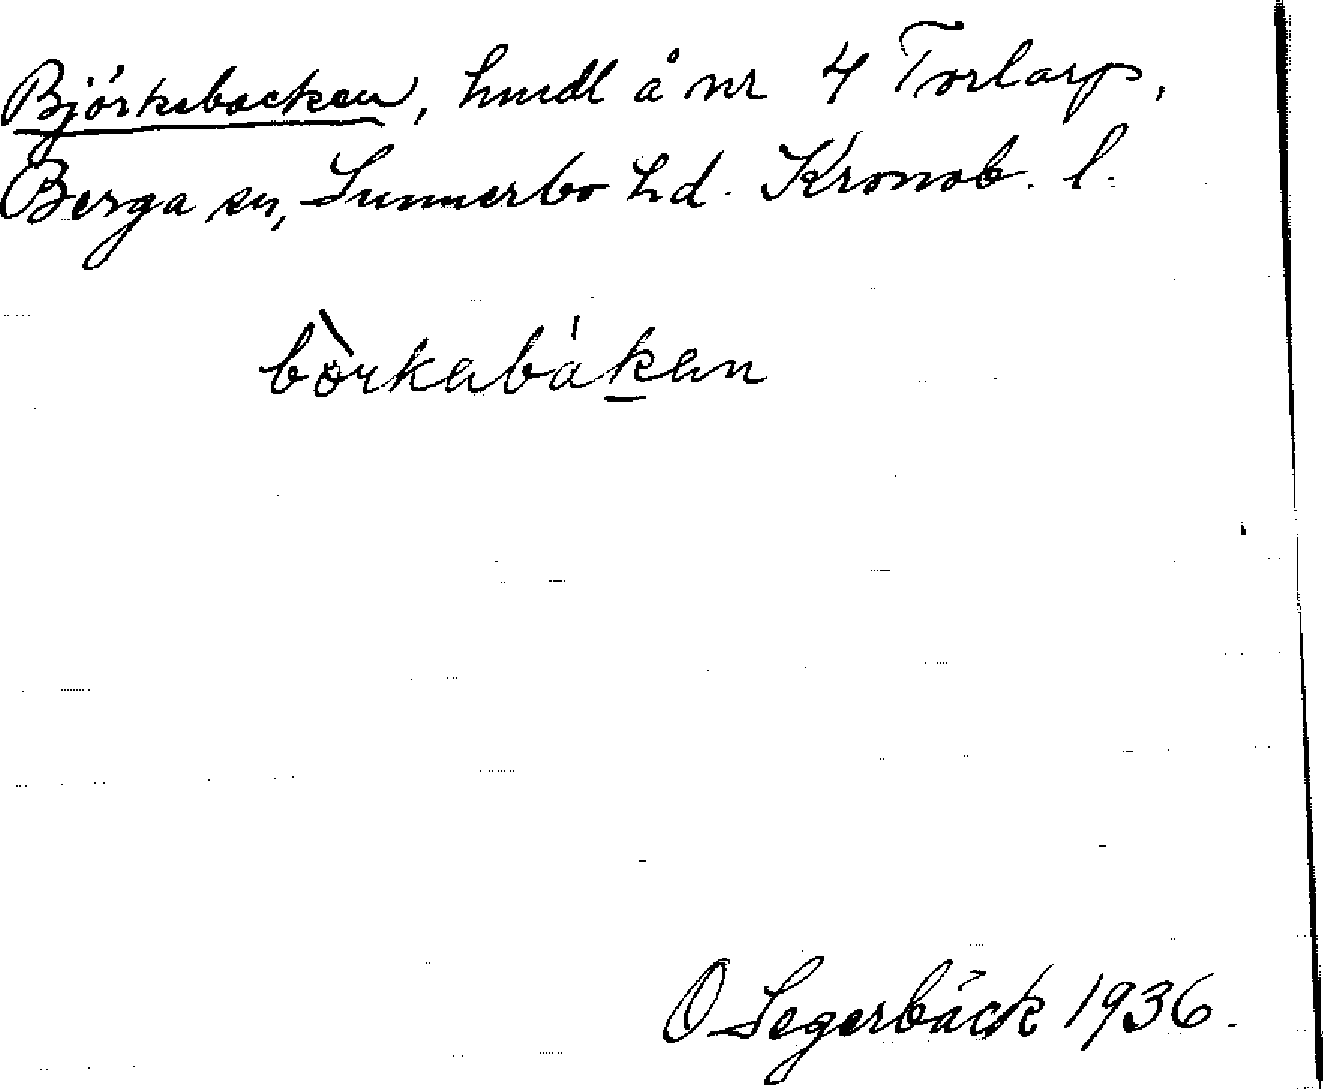 Björkebacken, hmdl å nr 4 Torlarp,
Berga sn, Sunnerbo hd. Kronob. l.
bòrkabákan
O Segerbäck 1936.